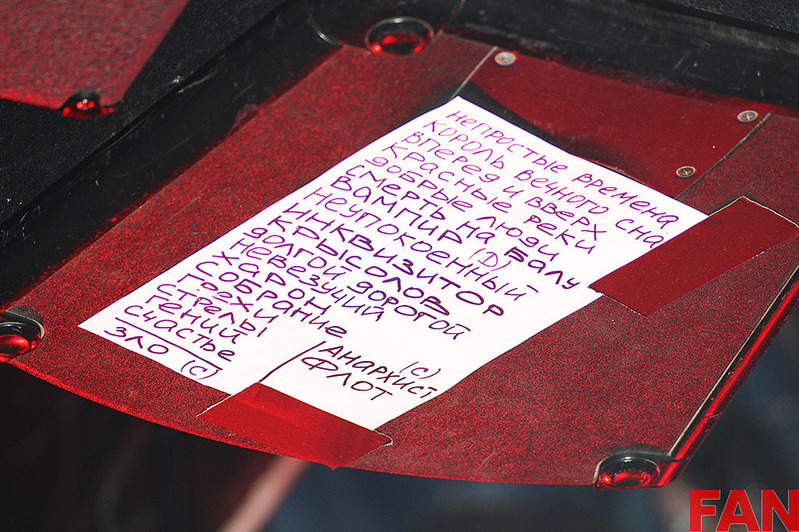 НЕПРОСТЫЕ ВРЕМЕНА
КОРОЛЬ ВЕЧНОГО СНА
ВПЕРЕД И ВВЕРХ
КРАСНЫЕ РЕКИ
ДОБРЫЕ ЛЮДИ
СМЕРТЬ НА БАЛУ
ВАМПИР (D)
НЕУПОКОЕННЫЙ
ИНКВИЗИТОР
КРЫСОЛОВ
ДОЛГОЙ ДОРОГОЙ
НЕВЕЗУЧИЙ
ХАРОН
СОБРАНИЕ
ГРЕХИ
СТРЕЛЫ
ГЕНИЙ
СЧАСТЬЕ
ЗЛО (С)
(С)
АНАРХИСТ
ФЛОТ
FAN